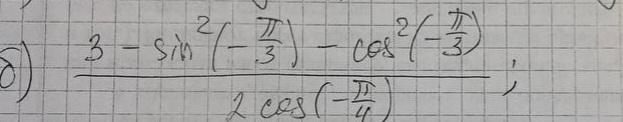 б) (3 - sin²(-π/3) - cos²(-π/3)) / (2 cos(-π/4)) ;